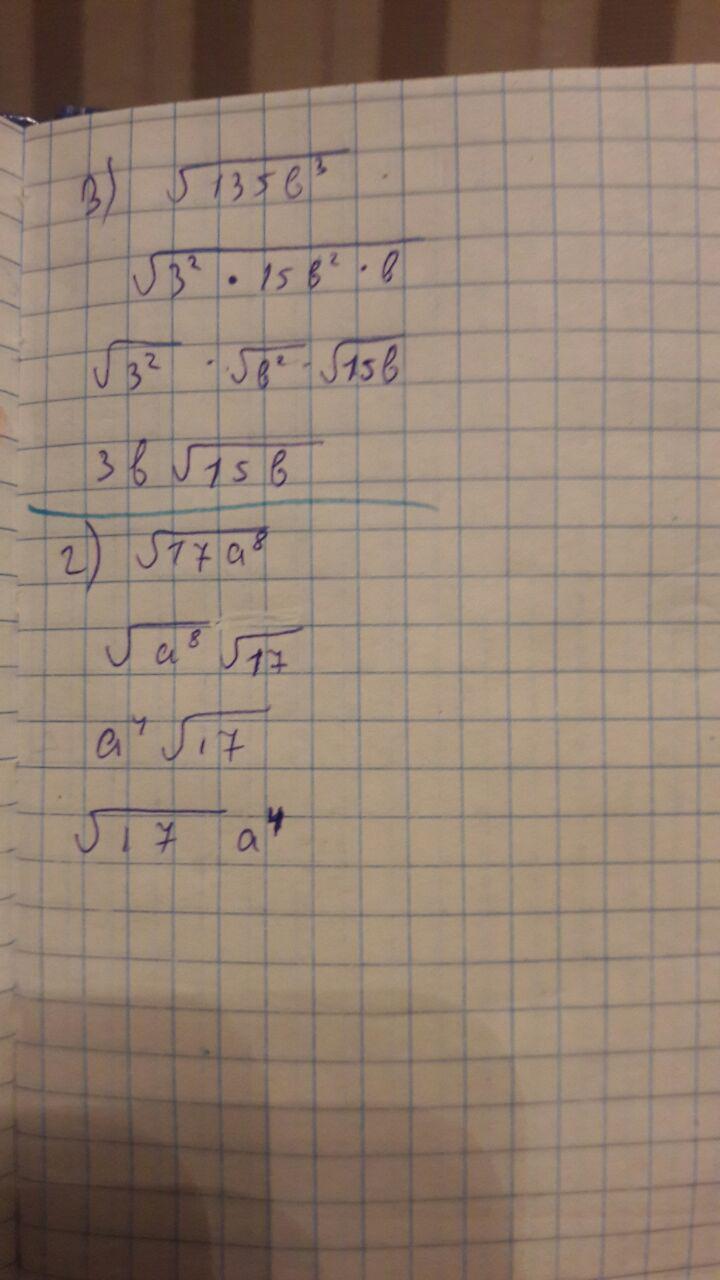 3) √135b³
√3² · 15b² · b
√3² · √b² · √15b
3b √15b
2) √17a⁸
√a⁸ √17
a⁴ √17
√17 a⁴